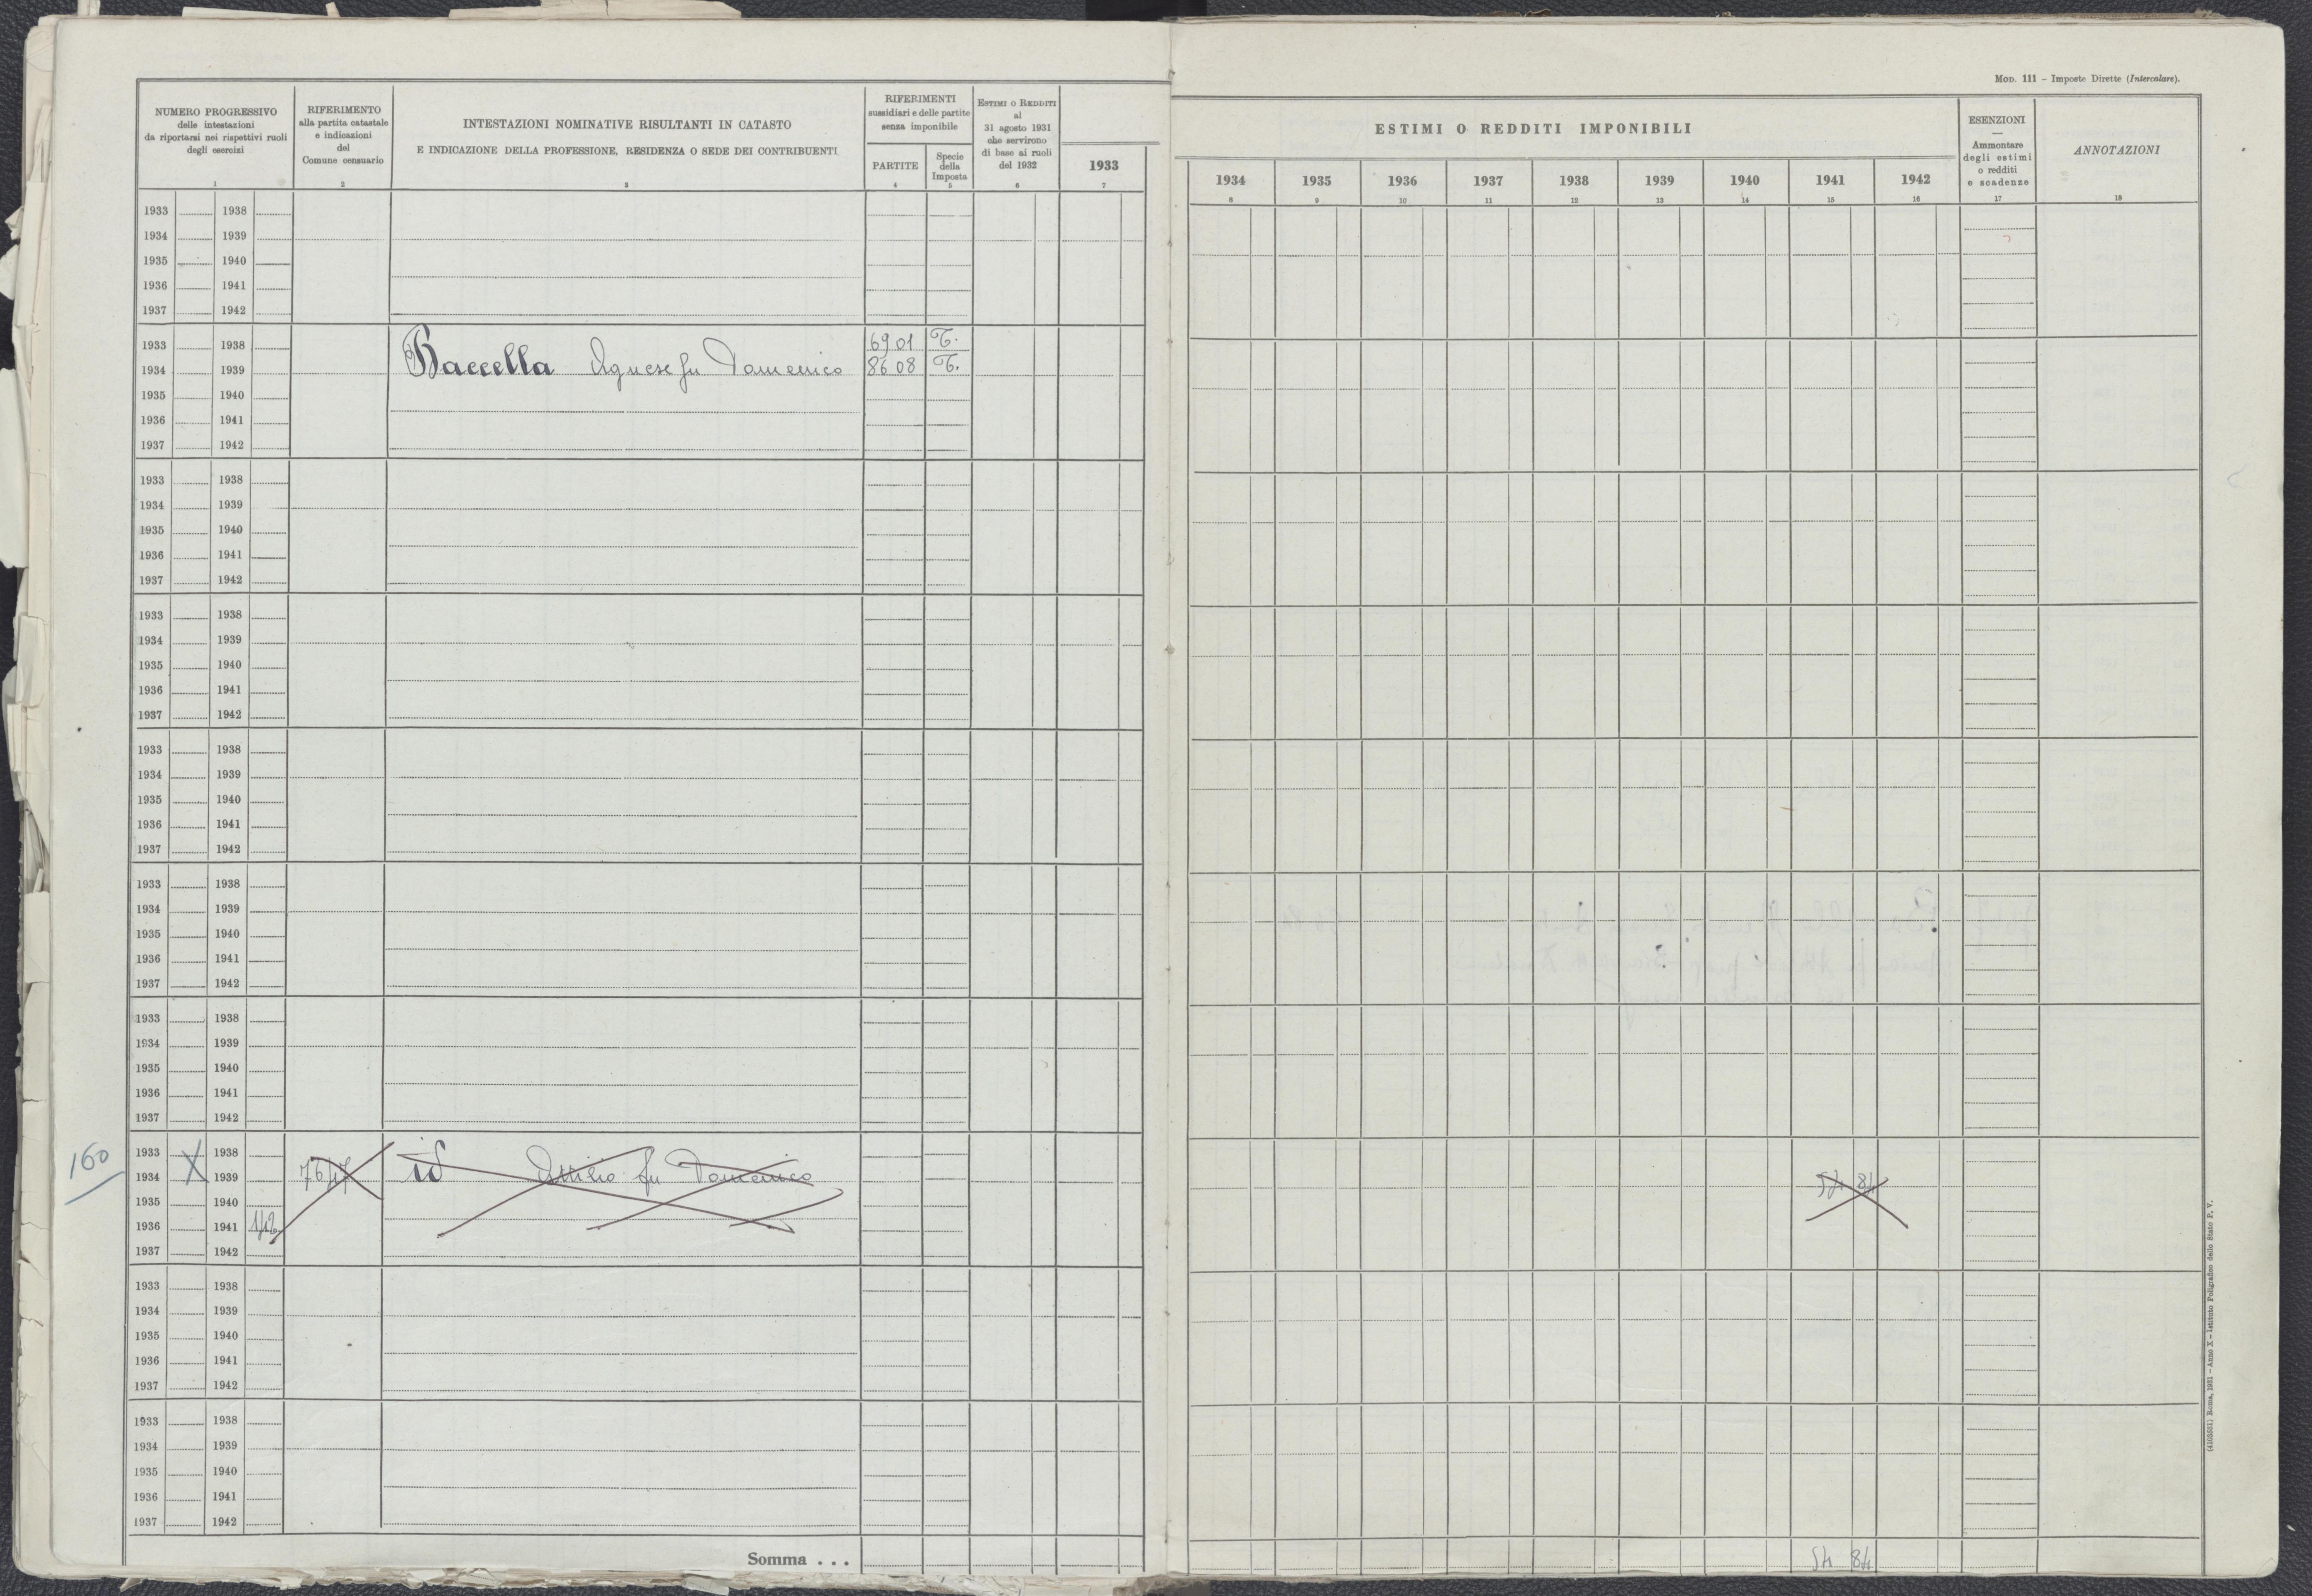 MOD. 111 – Imposte Dirette (Intercalare).
NUMERO PROGRESSIVO
delle intestazioni
da riportarsi nei rispettivi ruoli
degli esercizi
1
RIFERIMENTO
alla partita catastale
e indicazioni
del
Comune censuario
2
INTESTAZIONI NOMINATIVE RISULTANTI IN CATASTO
E INDICAZIONE DELLA PROFESSIONE, RESIDENZA O SEDE DEI CONTRIBUENTI
3
RIFERIMENTI
sussidiari e delle partite
senza imponibile
PARTITE
4
Specie
della
Imposta
5
ESTIMI O REDDITI
al
31 agosto 1931
che servirono
di base ai ruoli
del 1932
6
1933
7
ESTIMI O REDDITI IMPONIBILI
1934 1935 1936 1937 1938 1939 1940 1941 1942
8 9 10 11 12 13 14 15 16
ESENZIONI
—
Ammontare
degli estimi
o redditi
e scadenze
17
ANNOTAZIONI
18
1933 1938
1934 1939
1935 1940
1936 1941
1937 1942
1933 1938 6901 T.
1934 1939 Baccella Agnese fu Domenico 8608 T.
1935 1940
1936 1941
1937 1942
1933 1938
1934 1939
1935 1940
1936 1941
1937 1942
1933 1938
1934 1939
1935 1940
1936 1941
1937 1942
1933 1938
1934 1939
1935 1940
1936 1941
1937 1942
1933 1938
1934 1939
1935 1940
1936 1941
1937 1942
1933 1938
1934 1939
1935 1940
1936 1941
1937 1942
160
1933 X 1938
1934 1939 id Attilio fu Domenico
1935 1940
1936 1941
1937 1942
1933 1938
1934 1939
1935 1940
1936 1941
1937 1942
1933 1938
1934 1939
1935 1940
1936 1941
1937 1942
Somma . . .
Roma, 1931 – Anno X – Istituto Poligrafico dello Stato P. V.